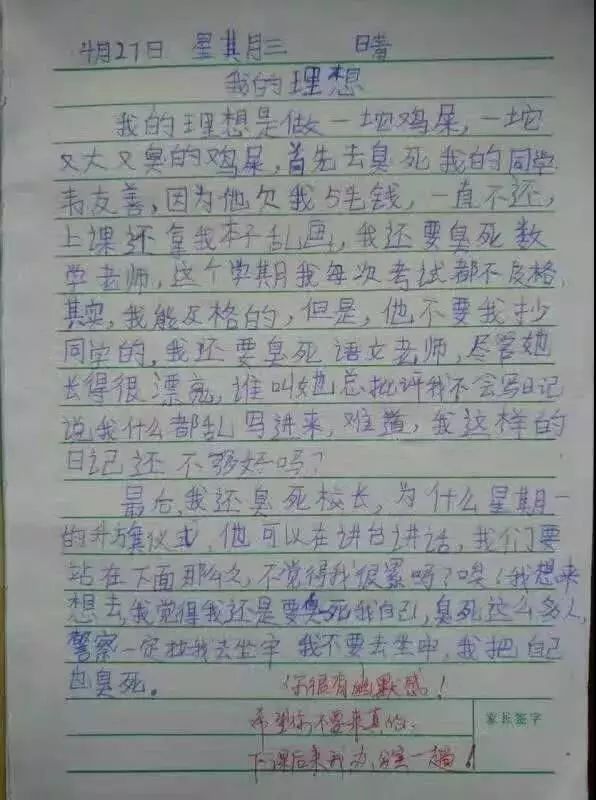 4月27日 星其月三 晴
我的理想
我的理想是做一坨鸡屎,一坨
又大又臭的鸡屎,首先去臭死我的同学
韦友善,因为他欠我5毛钱,一直不还,
上课还拿我本子乱画,我还要臭死数
学老师,这个学期我每次考试都不及格,
其实,我能及格的,但是,他不要我抄
同学的,我还要臭死语文老师,尽管她
长得很漂亮,谁叫她总批评我不会写日记
说我什么都乱写进来,难道,我这样的
日记还不够好吗?
最后,我还臭死校长,为什么星期一
的升旗仪式,他可以在讲台讲话,我们要
站在下面那么久,不觉得我很累吗?唉!我想来
想去,我觉得我还是要臭死我自己,臭死这么多人,
警察一定拉我去坐牢 我不要去坐牢,我把自己
也臭死。
你很有幽默感!
希望你不要来真的,
下课后来我办公室一趟!
家长签字